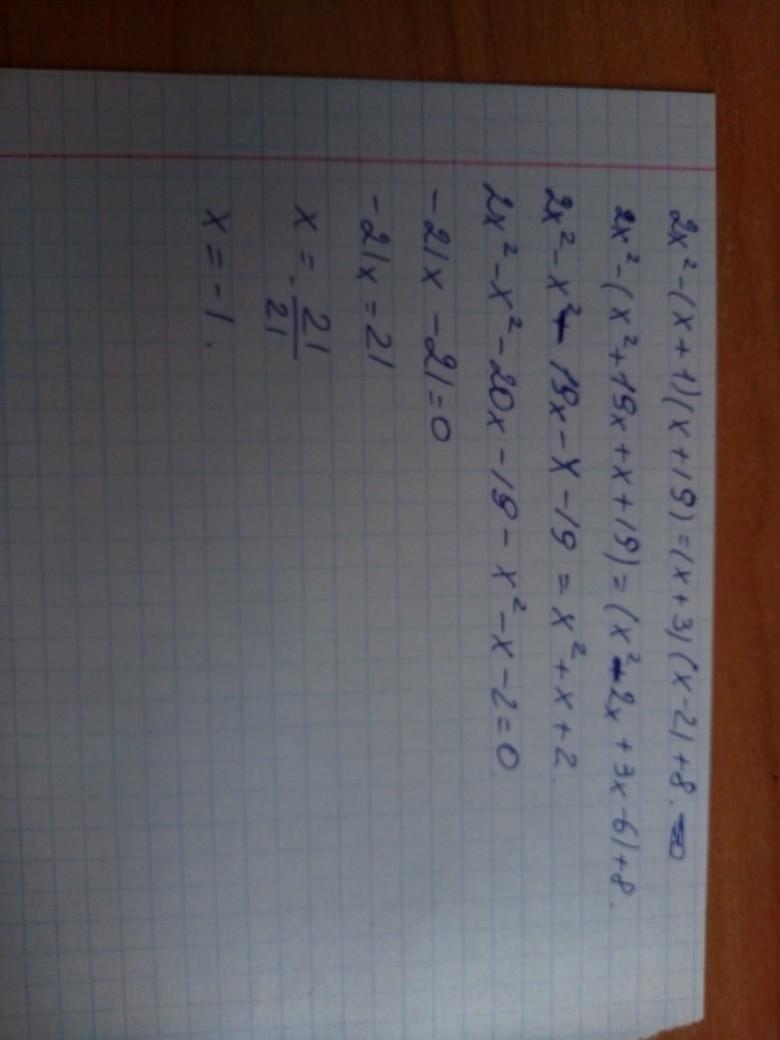 2x² - (x + 1)(x + 19) = (x + 3)(x - 2) + 8.
2x² - (x² + 19x + x + 19) = (x² - 2x + 3x - 6) + 8.
2x² - x² - 19x - x - 19 = x² + x + 2.
2x² - x² - 20x - 19 - x² - x - 2 = 0
- 21x - 21 = 0
- 21x = 21
x = - 21/21
x = - 1.